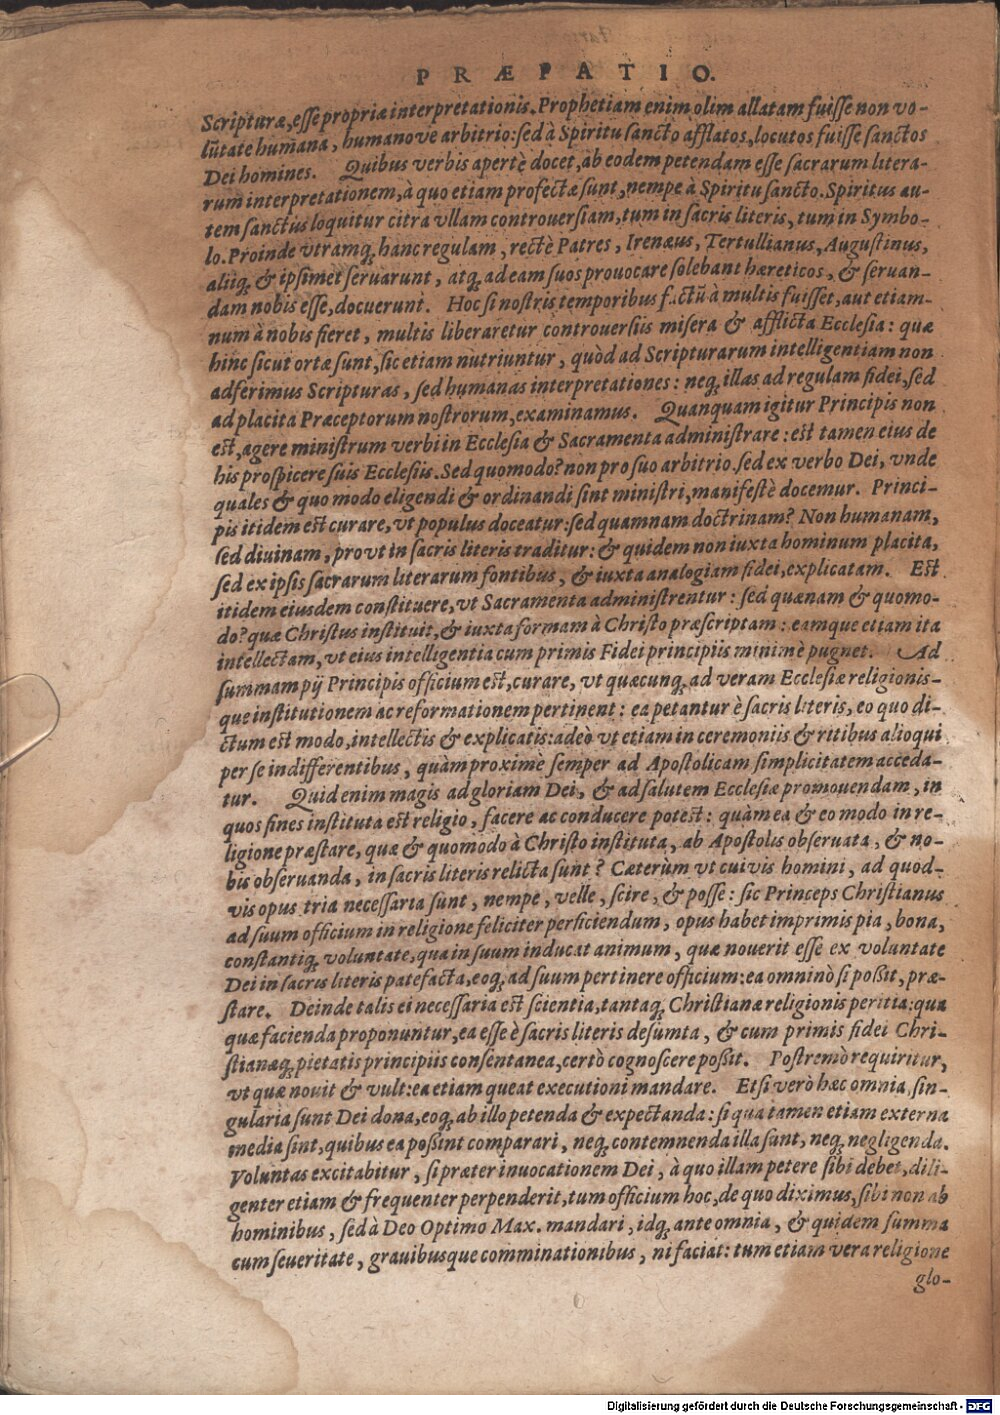 PRÆFATIO.
Scripturæ, esse propriæ interpretationis. Prophetiam enim olim allatam fuisse non vo-
lūtate humana, humanove arbitrio: sed à Spiritu sancto afflatos, locutos fuisse sanctos
Dei homines. Quibus verbis apertè docet, ab eodem petendam esse sacrarum litera-
rum interpretationem, à quo etiam profectæ sunt, nempe à Spiritu sancto. Spiritus au-
tem sanctus loquitur citra vllam controuersiam, tum in sacris literis, tum in Symbo-
lo. Proinde vtramq; hanc regulam, rectè Patres, Irenæus, Tertullianus, Augustinus,
aliiq; & ipsimet seruarunt, atq; ad eam suos prouocare solebant hæreticos, & seruan-
dam nobis esse, docuerunt. Hoc si nostris temporibus factū à multis fuisset, aut etiam-
num à nobis fieret, multis liberaretur controuersiis misera & afflicta Ecclesia: quæ
hinc sicut ortæ sunt, sic etiam nutriuntur, quòd ad Scripturarum intelligentiam non
adferimus Scripturas, sed humanas interpretationes: neq; illas ad regulam fidei, sed
ad placita Præceptorum nostrorum, examinamus. Quanquam igitur Principis non
est, agere ministrum verbi in Ecclesia & Sacramenta administrare: est tamen eius de
his prospicere suis Ecclesiis. Sed quomodo? non pro suo arbitrio, sed ex verbo Dei, vnde
quales & quo modo eligendi & ordinandi sint ministri, manifestè docemur. Princi-
pis itidem est curare, vt populus doceatur: sed quamnam doctrinam? Non humanam,
sed diuinam, prout in sacris literis traditur: & quidem non iuxta hominum placita,
sed ex ipsis sacrarum literarum fontibus, & iuxta analogiam fidei, explicatam. Est
itidem eiusdem constituere, vt Sacramenta administrentur: sed quænam & quomo-
do? quæ Christus instituit, & iuxta formam à Christo præscriptam: eamque etiam ita
intellectam, vt eius intelligentia cum primis Fidei principiis minimè pugnet. Ad
summam pij Principis officium est, curare, vt quæcunq; ad veram Ecclesiæ religionis-
que institutionem ac reformationem pertinent: ea petantur è sacris literis, eo quo di-
ctum est modo, intellectis & explicatis: adeò vt etiam in ceremoniis & ritibus alioqui
per se indifferentibus, quàm proximè semper ad Apostolicam simplicitatem acceda-
tur. Quid enim magis ad gloriam Dei, & ad salutem Ecclesiæ promouendam, in
quos fines instituta est religio, facere ac conducere potest: quàm ea & eo modo in re-
ligione præstare, quæ & quomodo à Christo instituta, ab Apostolis obseruata, & no-
bis obseruanda, in sacris literis relicta sunt? Cæterùm vt cuivis homini, ad quod-
vis opus tria necessaria sunt, nempe, velle, scire, & posse: sic Princeps Christianus
ad suum officium in religione feliciter perficiendum, opus habet imprimis pia, bona,
constantiq; voluntate, qua in suum inducat animum, quæ nouerit esse ex voluntate
Dei in sacris literis patefacta, eoq; ad suum pertinere officium: ea omninò si poßit, præ-
stare. Deinde talis ei necessaria est scientia, tantaq; Christianæ religionis peritia: qua
quæ facienda proponuntur, ea esse è sacris literis desumta, & cum primis fidei Chri-
stianæq; pietatis principiis consentanea, certò cognoscere poßit. Postremò requiritur,
vt quæ nouit & vult: ea etiam queat executioni mandare. Etsi verò hæc omnia, sin-
gularia sunt Dei dona, eoq; ab illo petenda & expectanda: si qua tamen etiam externa
media sint, quibus ea poßint comparari, neq; contemnenda illa sunt, neq; negligenda.
Voluntas excitabitur, si præter inuocationem Dei, à quo illam petere sibi debet, dili-
genter etiam & frequenter perpenderit, tum officium hoc, de quo diximus, sibi non ab
hominibus, sed à Deo Optimo Max. mandari, idq; ante omnia, & quidem summa
cum seueritate, grauibusque comminationibus, ni faciat: tum etiam vera religione
glo-
Digitalisierung gefördert durch die Deutsche Forschungsgemeinschaft - DFG